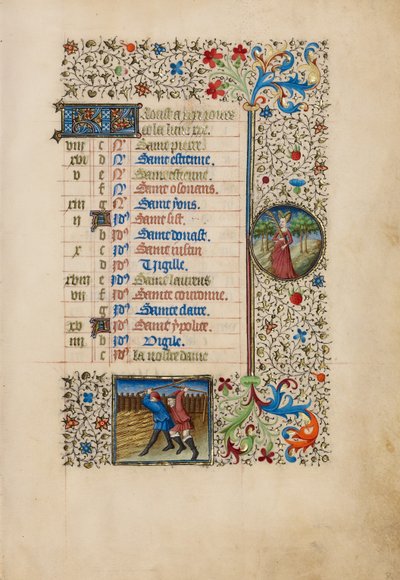 Aoust a xxxi jours
et la lune xxx.
viii c N Saint pierre
xvi d N Saint estienne.
v e N Saint estienne
f N Saint osouans.
xiii g N Saint yons.
ii A Id Saint sist.
b Id Saint donast.
x c Id Saint iustin
d Id Vigille.
xviii e Id Saint laurens
vii f Id Sainte couronne.
g Id Sainte claire.
xv A Id Saint ypolite.
iiii b Id Vigile.
c Id La nostre dame